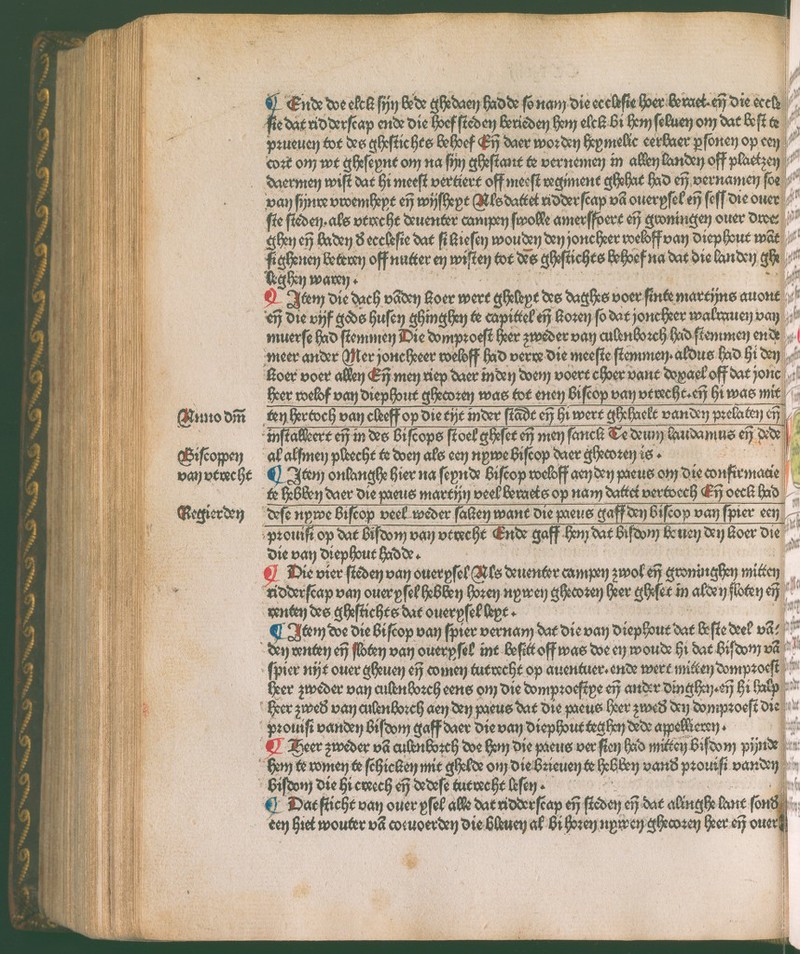 ¶ Ende doe elck sijn bede ghedaen hadde so nam die ecclesie hoer beraet. en̄ die eccle
sie dat ridderscap ende die hoefsteden berieden hem elck bi hem seluen om dat best te
prueuen tot des ghestichts behoef En̄ daer worden heymelic eerbaer ꝑsonen op een
cort om wt gheseynt om na sijn ghestant te vernemen in allen landen off plaetzen
daermen wist dat hi meest vertiert off meest regiment ghehat had en̄ vernamen soe
van sijnre vroemheyt en̄ wijsheyt Als dattet ridderscap vā ouerysel en̄ sess die ouer
ste steden. als vtrecht deuenter campen swolle amerssoert en̄ groningen ouer droe-
ghen en̄ baden d ecclesie dat si kiesen wouden den joncheer roeloff van diephout wāt
si ghenen beteren off nutter en wisten tot des ghestichts behoef na dat die landen ghe
leghen waren.
¶ Item die dach vāden koer wert gheleyt des daghes voer sinte martijns auont
en̄ die vijf gods husen ghinghen te capittel en̄ koren so dat joncheer walrauen van
muerse had stemmen Die domproest heer zweder van culenborch had stemmen ende
meer ander Mer joncheeer roeloff had verre die meeste stemmen. aldus had hi den
koer voer allen En̄ men riep daer inden doem voert choer vant doxael off dat jonc
heer roelof van diephout ghecoren was tot enen biscop van vtrecht. en̄ hi was mit
Anno dm̄
ten hertoch van cleeff op die tijt inder stadt en̄ hi wert ghehaelt vanden prelaten en̄
installeert en̄ in des biscops stoel gheset en̄ men sanck Te deum laudamus en̄ dede
Biscoppen
al alsmen pleecht te doen als een nywe biscop daer ghecoren is.
van vtrecht
¶ Item onlanghe hier na seynde biscop roeloff aen den paeus om die confirmatie
te hebben daer die paeus martijn veel beraets op nam dattet vertoech En̄ oeck had
Regierden
dese nywe biscop veel weder saken want die paeus gaff den biscop van spier een
prouisi op dat bisdom van vtrecht Ende gaff hem dat bisdom bouen den koer die
die van diephout hadde.
¶ Die vier steden van ouerysel Als deuenter campen zwol en̄ groninghen mitten
ridderscap van ouerysel hebben horen nywen ghecoren heer gheset in alden sloten en̄
renten des ghestichts dat ouerysel leyt.
¶ Item doe die biscop van spier vernam dat die van diephout dat beste deel vā-
den renten en̄ sloten van ouerysel int besitt off was doe en woude hi dat bisdom vā
spier nijt ouer gheuen en̄ comen tutrecht op auentuer. ende wert mitten domproest
heer zweder van culenborch eens om die domproestye en̄ ander dinghen. en̄ hi halp
heer zwed van culenborch aen den paeus dat die paeus heer zwed den domproest die
prouisi vanden bisdom gaff daer die van diephout teghen dede appellieren.
¶ Heer zweder vā culenborch doe hem die paeus versien had mitten bisdom pijnde
hem te romen te schicken mit ghelde om die brieuen te hebben vand prouisi vanden
bisdom die hi creech en̄ dedese tutrecht lesen.
¶ Dat sticht van ouer ysel alle dat ridderscap en̄ steden en̄ dat alinghe lant sond
een hiet wouter vā couoerden die bleuen al bi horen nywen ghecoren heer en̄ ouer